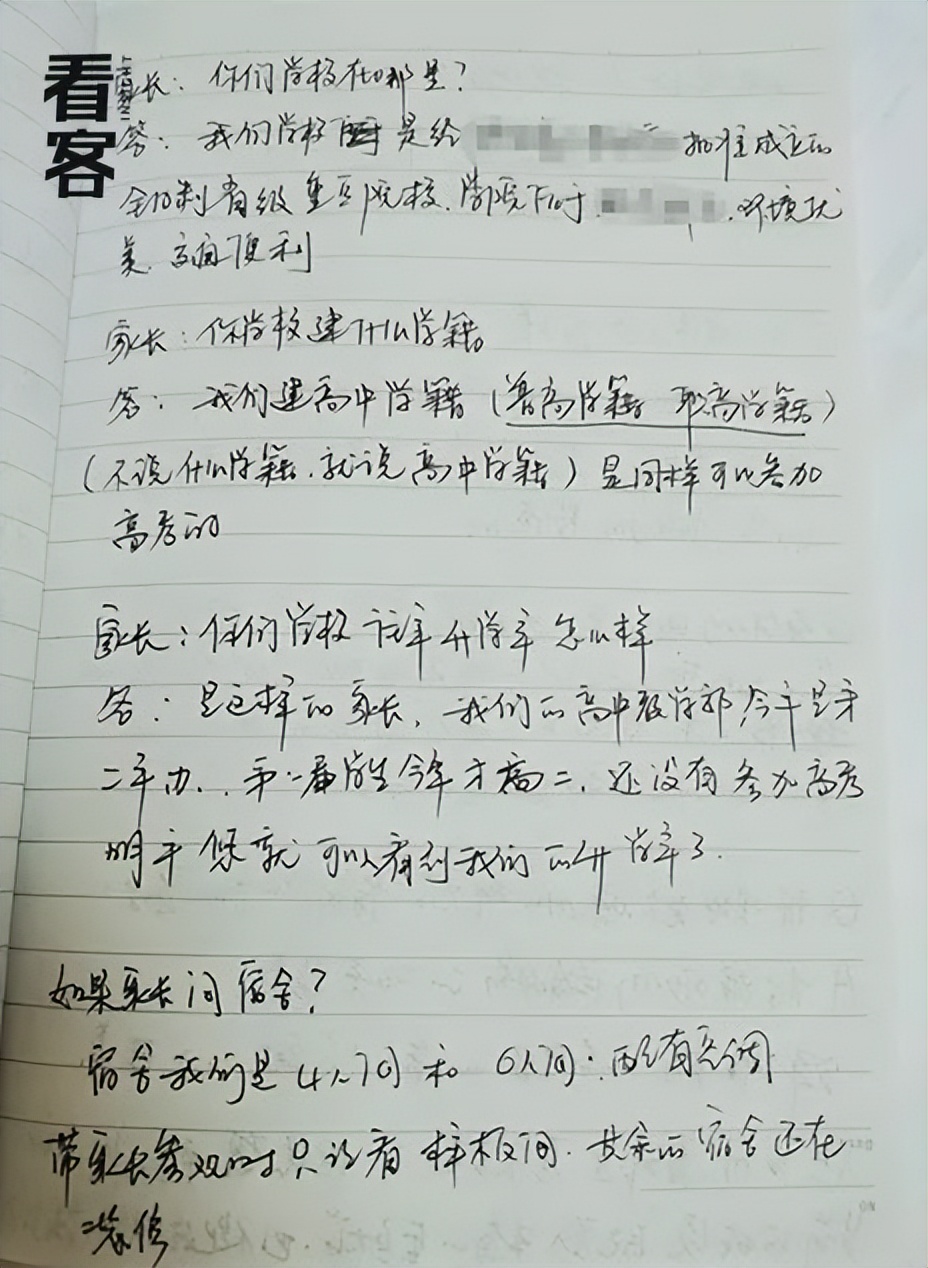 看客
家长：你们学校在哪里？
答：我们学校是经 批准成立的
全日制省级重点院校.学院下于 .环境优
美.交通便利
家长：你学校建什么学籍
答：我们建高中学籍（普高学籍 职高学籍）
（不说什么学籍.就说高中学籍）是同样可以参加
高考的
家长：你们学校往年升学率怎么样
答：是这样的家长，我们的高中教学部今年是第
二年办..第一届学生今年才高二.还没有参加高考
明年您就可以看到我们的升学率了.
如果家长问宿舍？
宿舍我们是4人间和6人间.配有空调
带家长参观时只说看样板间.其余的宿舍还在
装修